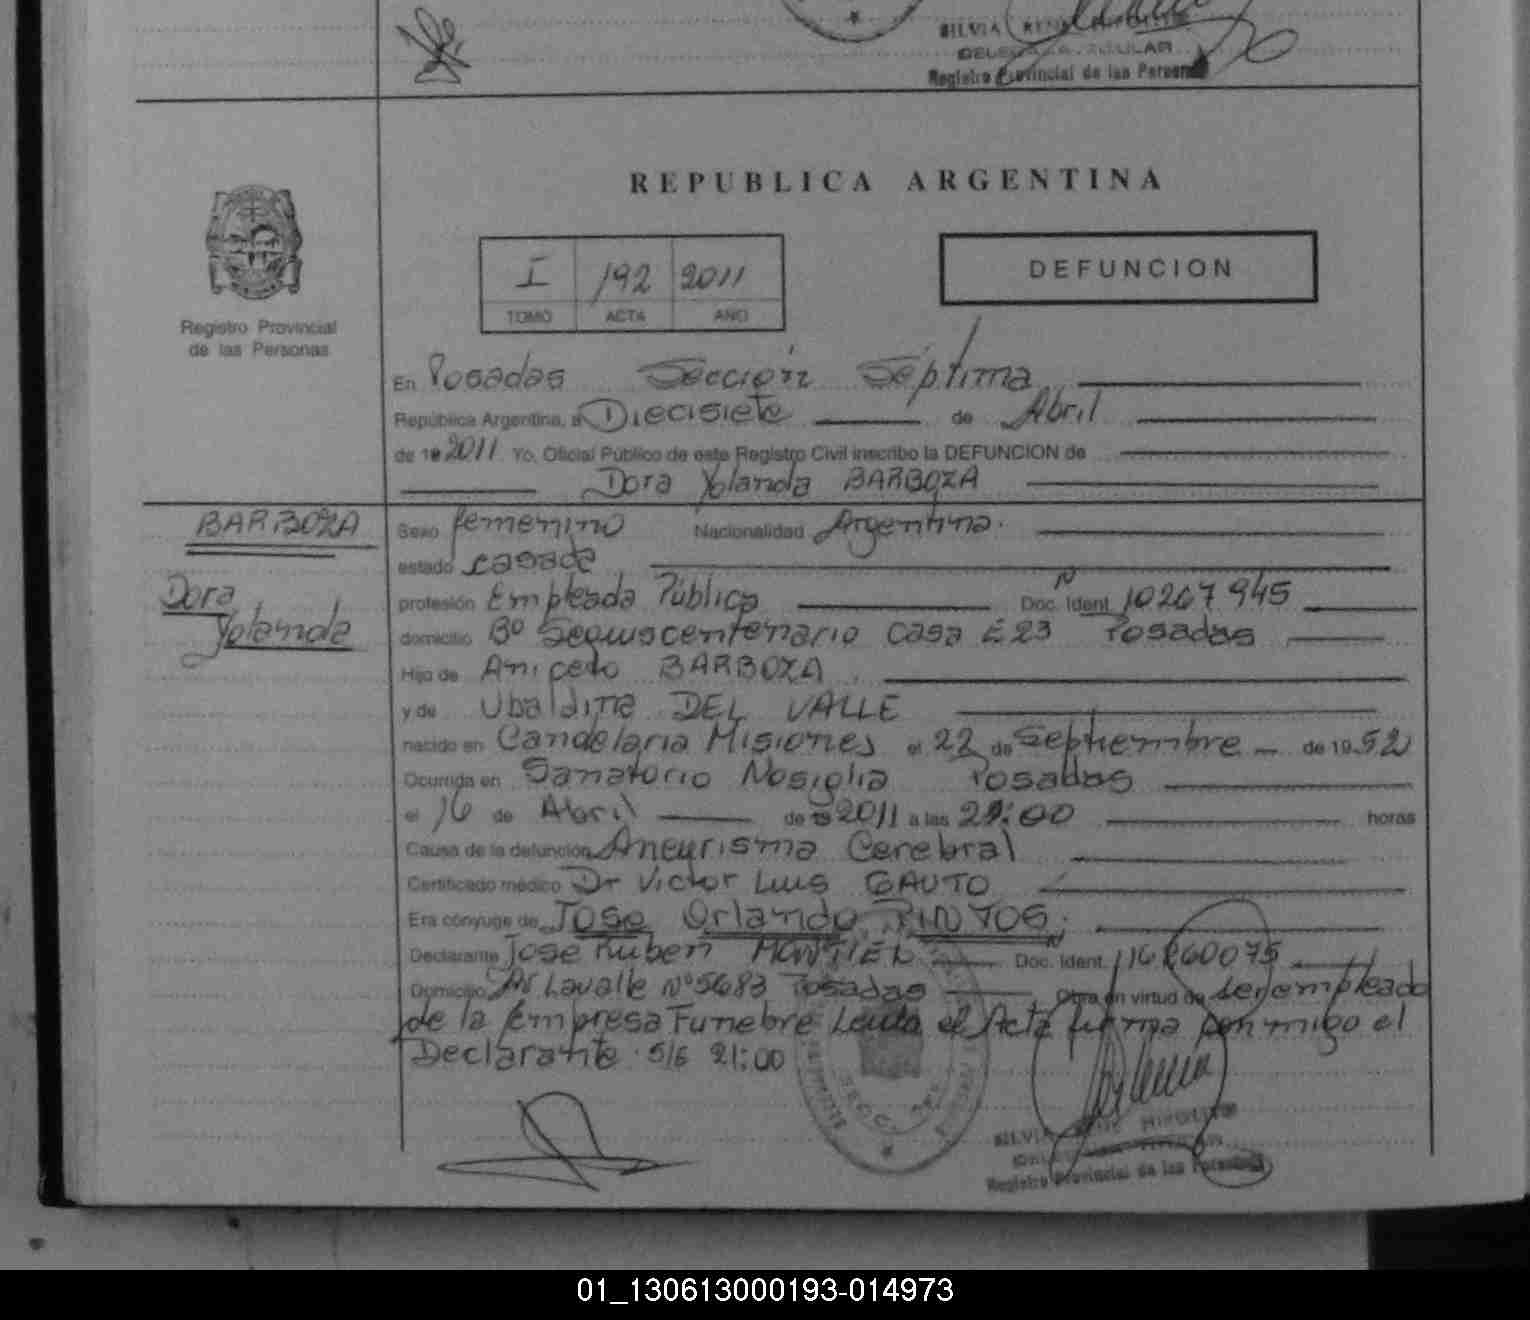 SILVIA
DELEGADA TITULAR
Registro Provincial de las Personas
REPUBLICA ARGENTINA
I 192 2011
TOMO ACTA AÑO
DEFUNCION
Registro Provincial
de las Personas
En Posadas Sección Séptima
República Argentina, a Diecisiete de Abril
de 19 2011. Yo, Oficial Público de este Registro Civil inscribo la DEFUNCION de
Dora Yolanda BARBOZA
BARBOZA
Dora
Yolanda
Sexo femenino Nacionalidad Argentina.
estado casada
profesión Empleada Pública Doc. Ident. N 10267945
domicilio Bº Sequiscentenario casa E23 Posadas
Hijo de Aniceto BARBOZA
y de Ubaldina DEL VALLE
nacido en Candelaria Misiones el 22 de Septiembre de 1952
Ocurrida en Sanatorio Nosiglia Posadas
el 16 de Abril de 19 2011 a las 21:00 horas
Causa de la defunción Aneurisma Cerebral
Certificado médico Dr Victor Luis GAUTO
Era cónyuge de Jose Orlando PINTOS.
Declarante Jose Ruben MONTIEL Doc. Ident. N 16260075
Domicilio Av Lavalle Nº 5683 Posadas Obra en virtud de ser empleado
de la Empresa Funebre Leida el Acta firma conmigo el
Declarante. S/E 21:00
SILVIA
Registro Provincial de las Personas
01_130613000193-014973